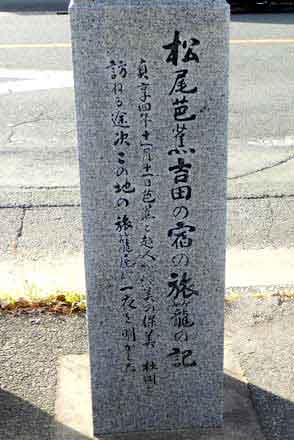 松尾芭蕉吉田の宿の旅籠の記
貞享四年十一月十一日芭蕉と越人が渥美の保美に杜国を
訪ねる途次この地の旅籠屋に一夜を明かした